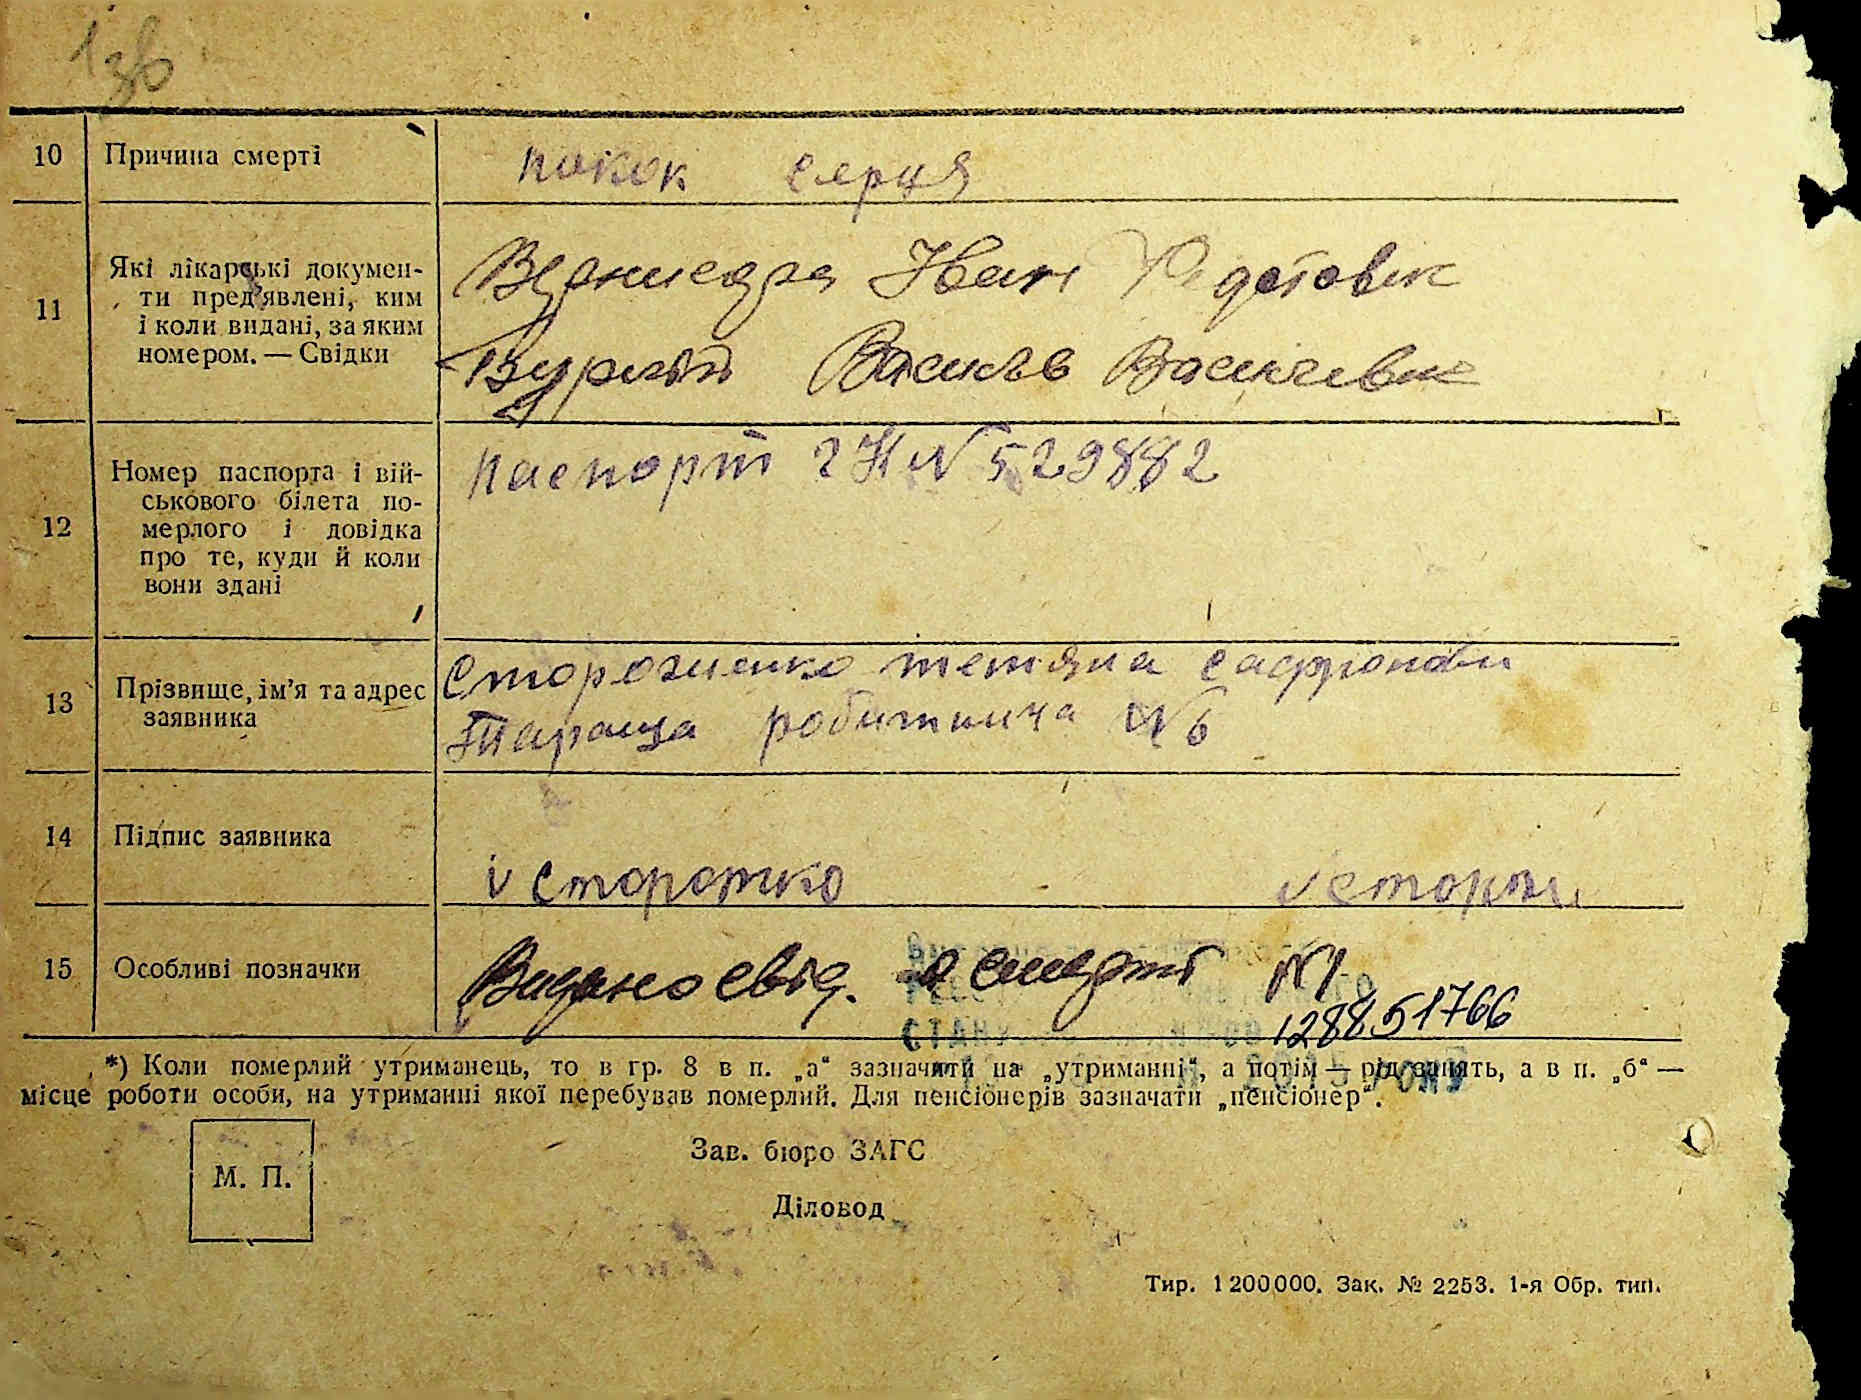 136
10 Причина смерті покок серця
11 Які лікарські докумен-
ти пред'явлені, ким
і коли видані, за яким
номером. — Свідки
Іван Федотовіч
Василь Васильевич
12 Номер паспорта і вій-
ськового білета по-
мерлого і довідка
про те, куди й коли
вони здані
паспорт ІІ № 529882
13 Прізвище, ім'я та адрес
заявника
Стороженко тетяна сафронови
Тараща робитнича № 6
14 Підпис заявника
v Сторотко v сторо
15 Особливі позначки Видано свід. о смерті №
128851766
*) Коли померлий утриманець, то в гр. 8 в п. „а“ зазначити на „утриманні“, а потім — рід занять, а в п. „б“ —
місце роботи особи, на утриманні якої перебував померлий. Для пенсіонерів зазначати „пенсіонер“.
М. П.
Зав. бюро ЗАГС
Діловод
Тир. 1 200 000. Зак. № 2253. 1-я Обр. тип.